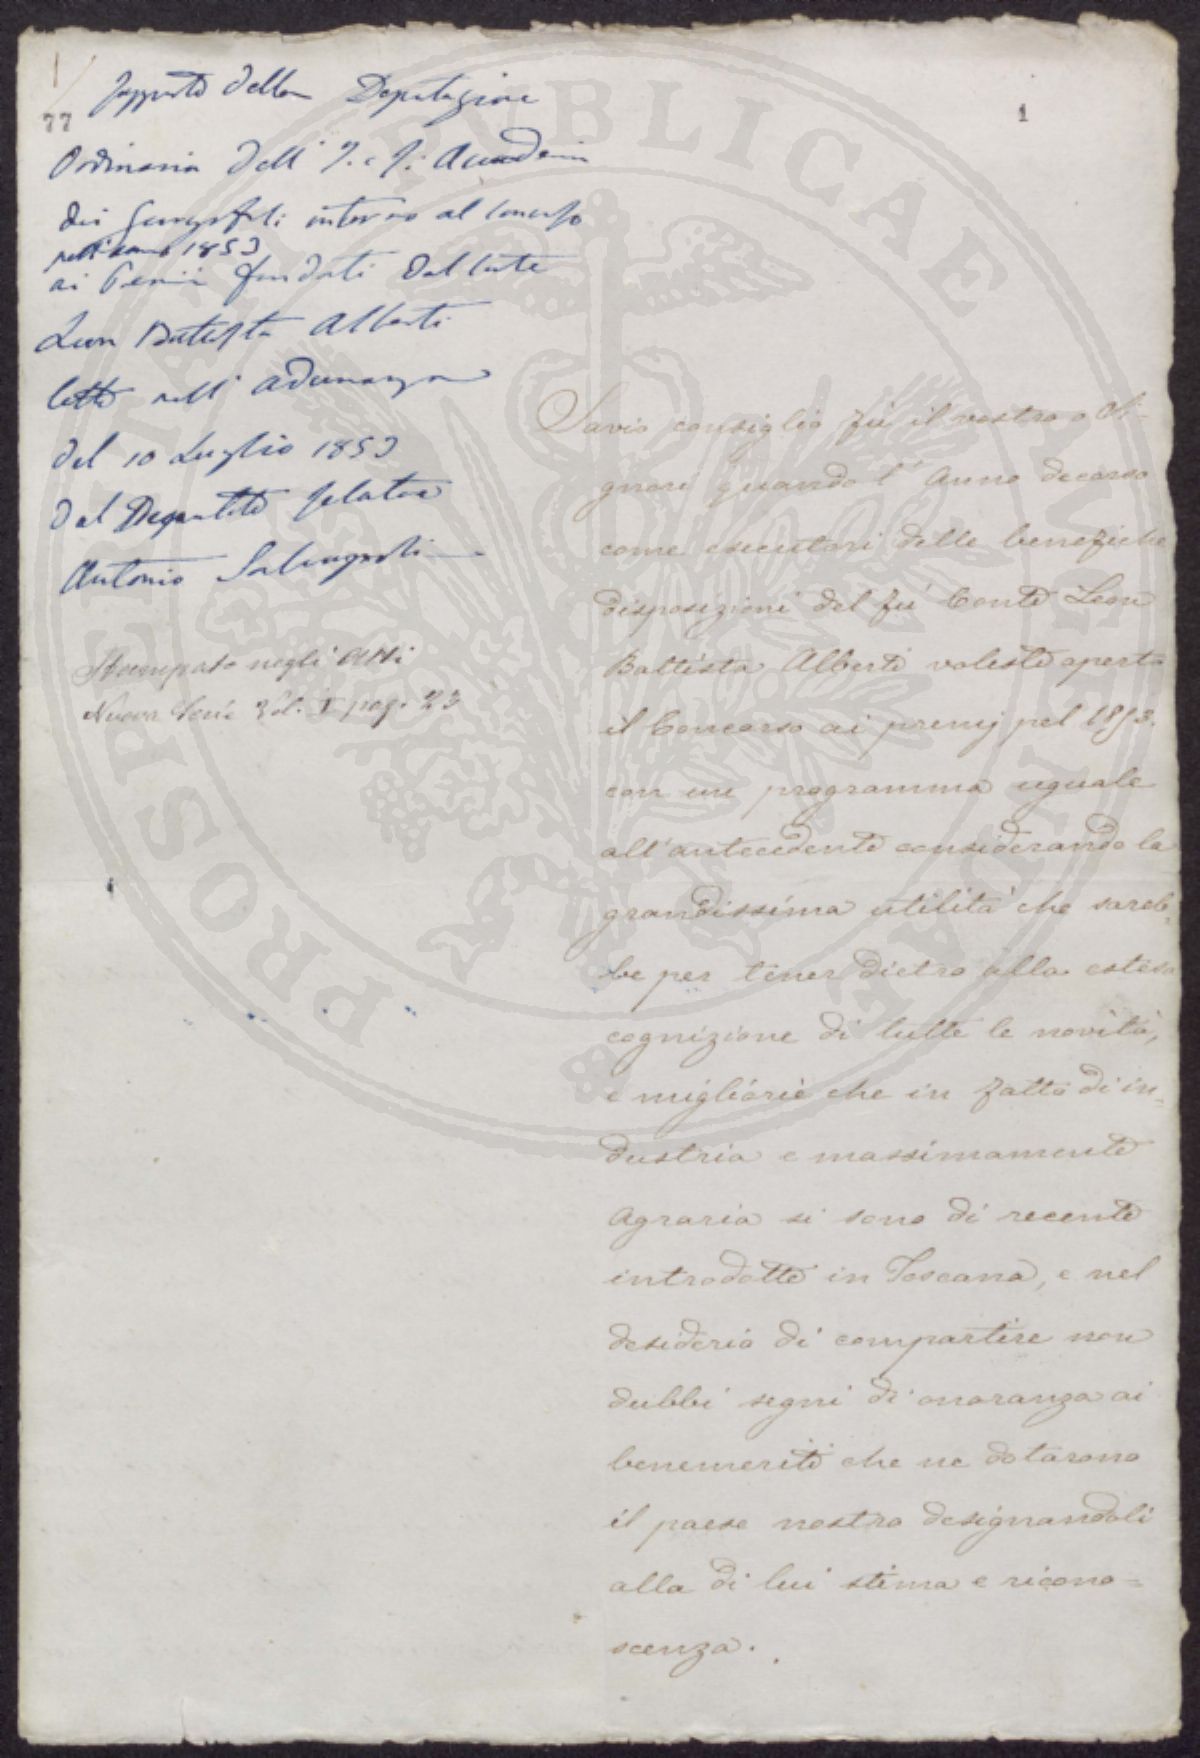 77
1
Rapporto della Deputazione
Ordinaria dell' I. e R. Accademia
dei Georgofili intorno al Concorso
nell'anno 1853
ai Premi fondati dal Conte
Leon Battista Alberti
letto nell' adunanza
del 10 Luglio 1853
dal Deputato Relatore
Antonio Salvagnoli
Stampato negli Atti
Nuova Serie Vol. I pag. 23
Savio consiglio fù il vostro o Si-
gnori quando l' Anno decorso
come esecutori delle benefiche
disposizioni del fù Conte Leon
Battista Alberti voleste aperto
il Concorso ai premj pel 1853.
con un programma uguale
all'antecedente considerando la
grandissima utilità che sareb=
be per tener dietro alla estesa
cognizione di tutte le novità,
e migliorie che in fatto di in=
dustria e massimamente
Agraria si sono di recente
introdotte in Toscana, e nel
desiderio di compartire non
dubbi segni di onoranza ai
benemeriti che ne dotarono
il paese nostro designandoli
alla di lui stima e ricono=
scenza.
PROSPERITATI PUBLICAE AUGENDAE